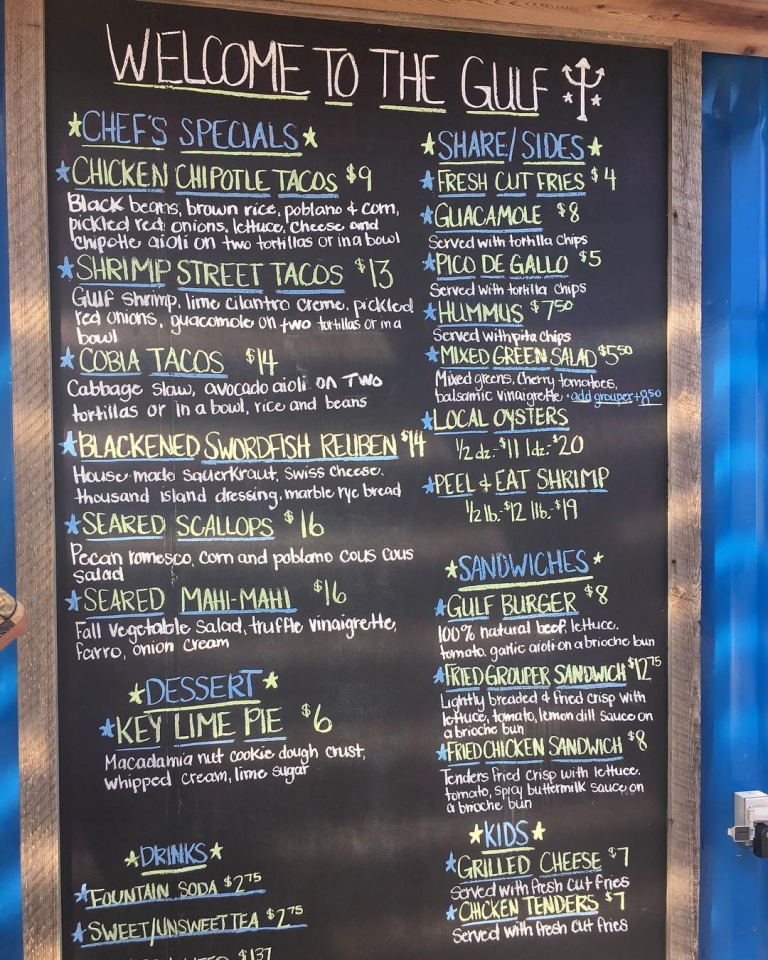 WELCOME TO THE GULF
CHEF'S SPECIALS
CHICKEN CHIPOTLE TACOS $9
Black beans, brown rice, poblano & corn,
pickled red onions, lettuce, cheese and
chipotle aioli on two tortillas or in a bowl
SHRIMP STREET TACOS $13
Gulf shrimp, lime cilantro creme, pickled
red onions, guacomole on two tortillas or in a
bowl
COBIA TACOS $14
Cabbage slaw, avocado aioli on two
tortillas or in a bowl, rice and beans
BLACKENED SWORDFISH REUBEN $14
House-made sauerkraut, swiss cheese,
thousand island dressing, marble rye bread
SEARED SCALLOPS $16
Pecan romesco, corn and poblano cous cous
salad
SEARED MAHI-MAHI $16
Fall vegetable salad, truffle vinaigrette,
farro, onion cream
DESSERT
KEY LIME PIE $6
Macadamia nut cookie dough crust,
whipped cream, lime sugar
DRINKS
FOUNTAIN SODA $2.75
SWEET/UNSWEET TEA $2.75
$1.37
SHARE/SIDES
FRESH CUT FRIES $4
GUACAMOLE $8
Served with tortilla chips
PICO DE GALLO $5
Served with tortilla chips
HUMMUS $7.50
Served with pita chips
MIXED GREEN SALAD $5.50
Mixed greens, cherry tomatoes,
balsamic vinaigrette • add grouper +8.50
LOCAL OYSTERS
1/2 dz.-$11 1dz.-$20
PEEL & EAT SHRIMP
1/2 lb.-$12 1lb.-$19
SANDWICHES
GULF BURGER $8
100% natural beef, lettuce,
tomato, garlic aioli on a brioche bun
FRIED GROUPER SANDWICH $12.75
Lightly breaded & fried crisp with
lettuce, tomato, lemon dill sauce on
a brioche bun
FRIED CHICKEN SANDWICH $8
Tenders fried crisp with lettuce,
tomato, spicy buttermilk sauce on
a brioche bun
KIDS
GRILLED CHEESE $7
Served with fresh cut fries
CHICKEN TENDERS $7
Served with fresh cut fries